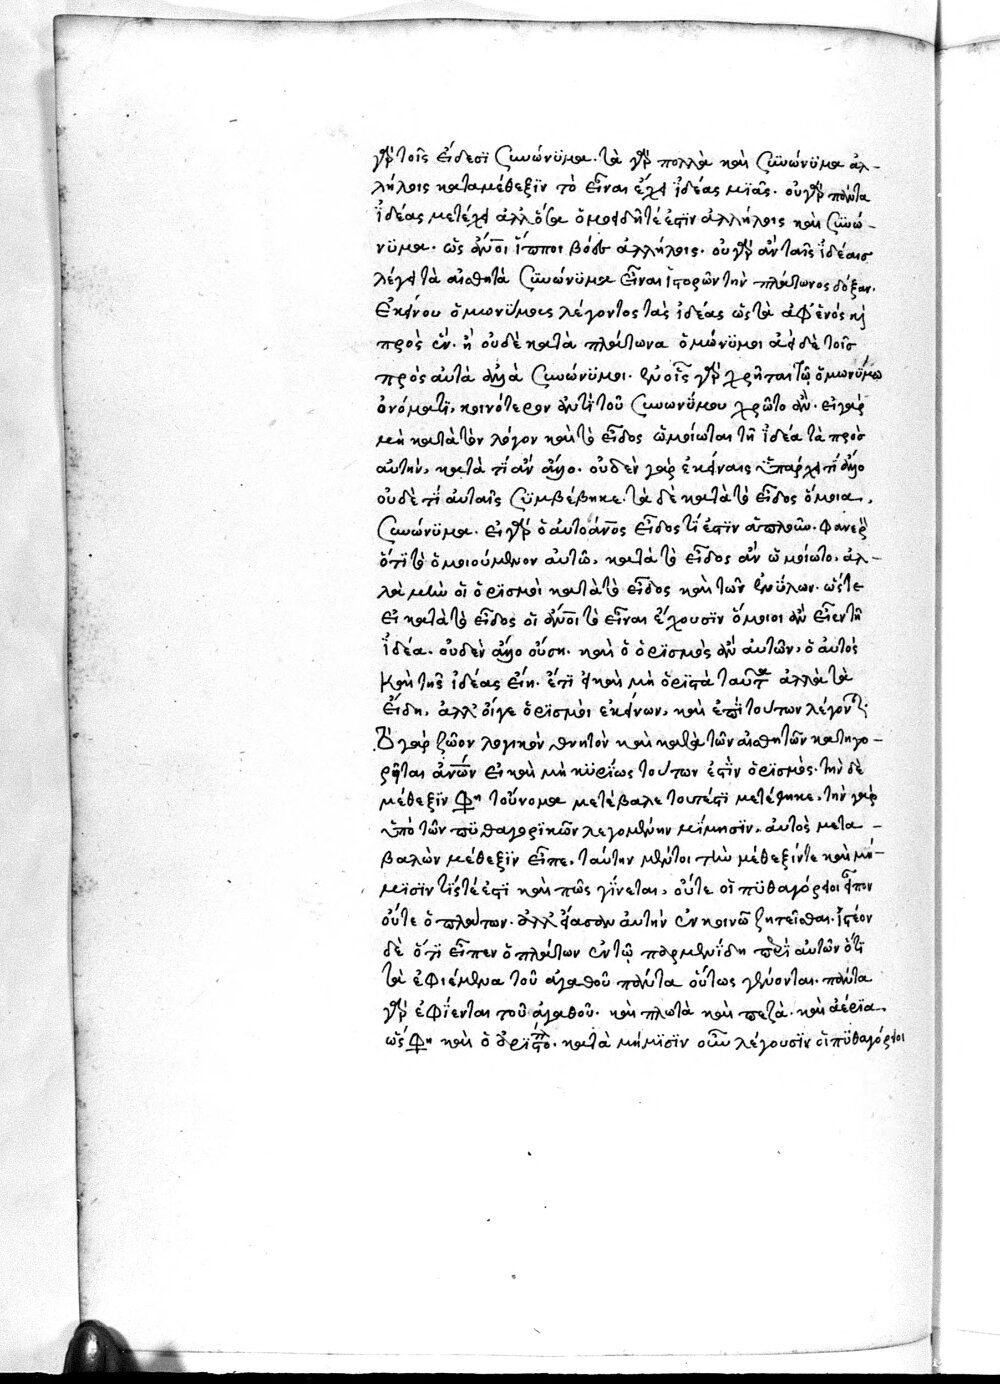 γὰρ τοῖς εἴδεσϊ συνώνϋμα. τὰ γὰρ πολλὰ καὶ σϋνώνϋμα ἀλ-
λήλοις κατα μέθεξϊν τὸ εἶναι ἔχει ἰδέας μϊᾶς. οὐ γὰρ πάντα
ἰδέας μετέχει ἀλλ' ὅσα ὁμοειδῆ τέ ἐστϊν ἀλλήλοις καὶ σϋνώ-
νϋμα. ὡς ἄνοι ἵπποι βόες ἀλλήλοις. οὐ γὰρ ἂν ταῖς ἰδέαις
λέγει τὰ αἰσθητὰ σϋνώνϋμα εἶναι ἱστορῶν τὴν πλάτωνος δόξαν.
ἐκείνου ὁμωνύμους λέγοντος τὰς ἰδέας ὡς τὰ ἀφ' ἑνὸς κὶ
πρὸς ἕν. ἢ οὐδὲ κατὰ πλάτωνα ὁμώνϋμοι αἱ ἰδέαι τοῖς
πρὸς αὐτὰ ἀλλὰ σϋνώνϋμοι. ἐν οἷς γὰρ χρῆται τῶ ὁμωνΰμω
ὀνόματϊ, κοινότερον ἀντὶ τοῦ σϋνωνΰμου χρῶτο ἄν. εἰ γὰρ
μὴ κατὰ τὸν λόγον καὶ τὸ εἶδος ὡμοίωται τῆ ἰδέα τὰ πρὸς
αὐτὴν, κατὰ τΐ ἂν ἄλλο. οὐδὲν γὰρ ἐκείναις ὑπάρχει τΐ ἄλλο
οὐδὲ τΐ αὐταῖς σϋμβέβηκε. τὰ δὲ κατὰ τὸ εἶδος ὅμοια,
σϋνώνϋμα. εἰ γὰρ ὁ αὐτοάνος εἶδος τΐ ἐστϊν ἁπλοῦν. φανερὸν
ὅτϊ τὸ ὁμοιούμενον αὐτῶ, κατὰ τὸ εἶδος ἂν ὡμοίωτο. ἀλ-
λὰ μὴν οἱ ὁρϊσμοὶ κατὰ τὸ εἶδος καὶ τῶν ἐνΰλων. ὥστε
εἰ κατὰ τὸ εἶδος οἱ ἄνοι τὸ εἶναι ἔχουσϊν ὅμοιοι ἂν εἶεν τῆ
ἰδέα. οὐδὲν ἄλλο οὔση. καὶ ὁ ὁρϊσμὸς ἂν αὐτῶν, ὁ αὐτὸς
καὶ τῆς ἰδέας εἴη. ἔτϊ εἰ καὶ μὴ ὁρϊστὰ ταῦτα ἀλλὰ τὰ
εἴδη, ἀλλ' οἵγε ὁρϊσμοὶ ἐκείνων, καὶ ἐπὶ τούτων λέγονται
τὸ γὰρ ζῶον λογικὸν θνητὸν καὶ κατὰ τῶν αἰσθητῶν κατηγο-
ρῆται ἀνων εἰ καὶ μὴ κϋρΐως τούτων ἐστϊν ὁρϊσμὸς. τὴν δὲ
μέθεξϊν φη τοὔνομα μετέβαλε τουτέστϊ μετέθηκε. τὴν γὰρ
ὑπὸ τῶν πϋθαγορϊκῶν λεγομένην μΐμησϊν, αὐτὸς μετα-
βαλὼν μέθεξϊν εἶπε. ταύτην μέντοι τὴν μέθεξίν τε καὶ μΐ-
μϊσϊν τΐς τέ ἐστϊ καὶ πῶς γΐνεται, οὔτε οἱ πϋθαγόρειοι εἶπον
οὔτε ὁ πλάτων. ἀλλ' εἴασαν αὐτὴν ἐν κοινῶ ζητεῖσθαι. ἰστέον
δὲ ὅτϊ εἶπεν ὁ πλάτων ἐν τῶ παρμενίδη περὶ αὐτῶν ὅτϊ
τὰ ἐφιέμενα τοῦ ἀγαθοῦ πάντα οὕτως γένονται. πάντα
γὰρ ἐφΐενται τοῦ ἀγαθοῦ. καὶ πλωτὰ καὶ πεζὰ. καὶ ἀέρϊα,
ὥς φη καὶ ὁ ἀρϊστοτ. κατὰ μΐμϊσϊν οὖν λέγουσϊν οἱ πϋθαγόρειοι